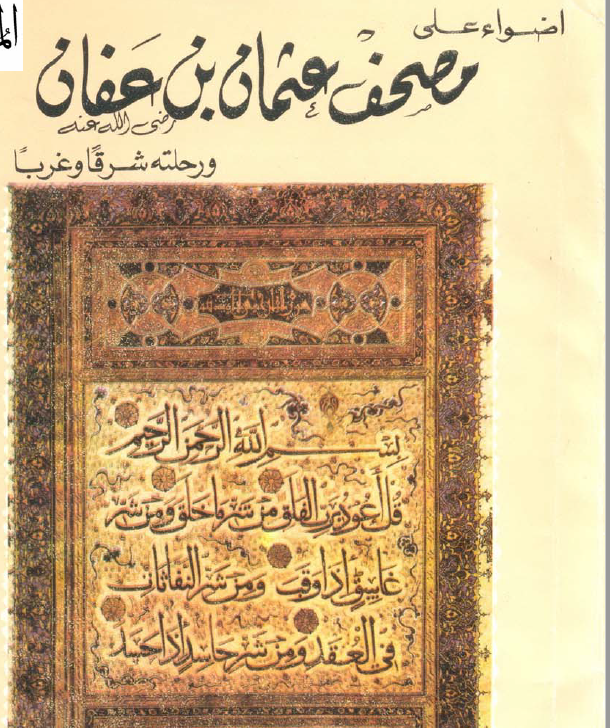 اضواء على
مصحف عثمان بن عفان
رضى الله عنه
ورحلته شرقًا وغربًا
بِسْمِ اللهِ الرَّحْمَنِ الرَّحِيمِ
قُلْ أَعُوذُ بِرَبِّ الفَلَقِ مِنْ شَرِّ مَا خَلَقَ وَمِنْ شَرِّ
غَاسِقٍ اذا وَقَبَ وَمِنْ شَرِّ النَّفَّاثَاتِ
فِي الْعُقَدِ وَمِنْ شَرِّ حَاسِدٍ اذا حَسَدَ